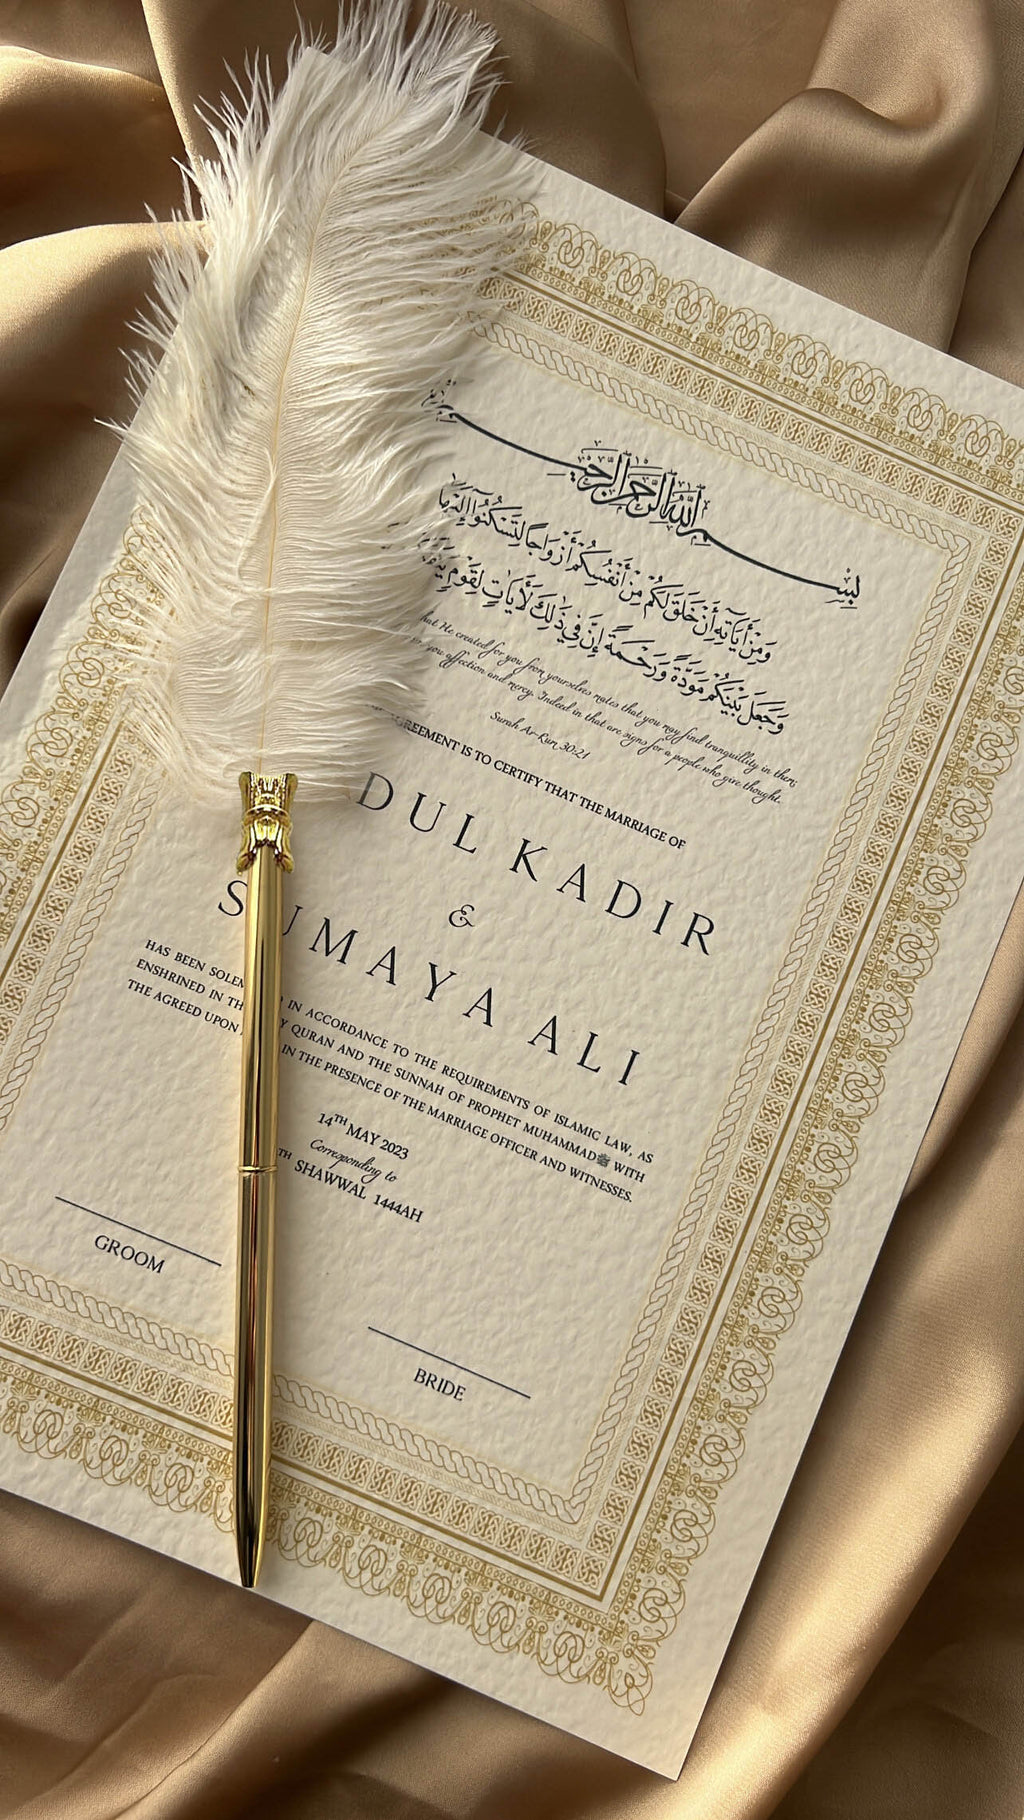 بِسْمِ اللهِ الرَّحْمٰنِ الرَّحِيْمِ
وَمِنْ آيَاتِهِ أَنْ خَلَقَ لَكُم مِّنْ أَنفُسِكُمْ أَزْوَاجًا لِّتَسْكُنُوا إِلَيْهَا
وَجَعَلَ بَيْنَكُم مَّوَدَّةً وَرَحْمَةً إِنَّ فِي ذَٰلِكَ لَآيَاتٍ لِّقَوْمٍ
that He created for you from yourselves mates that you may find tranquillity in them;
you affection and mercy. Indeed in that are signs for a people who give thought.
Surah Ar-Rum 30:21
IS TO CERTIFY THAT THE MARRIAGE OF
KADIR
&
SUMAYA ALI
HAS BEEN IN ACCORDANCE TO THE REQUIREMENTS OF ISLAMIC LAW, AS
ENSHRINED IN QURAN AND THE SUNNAH OF PROPHET MUHAMMADﷺ WITH
THE AGREED UPON IN THE PRESENCE OF THE MARRIAGE OFFICER AND WITNESSES.
14TH MAY 2023
Corresponding to
SHAWWAL 1444AH
GROOM
BRIDE